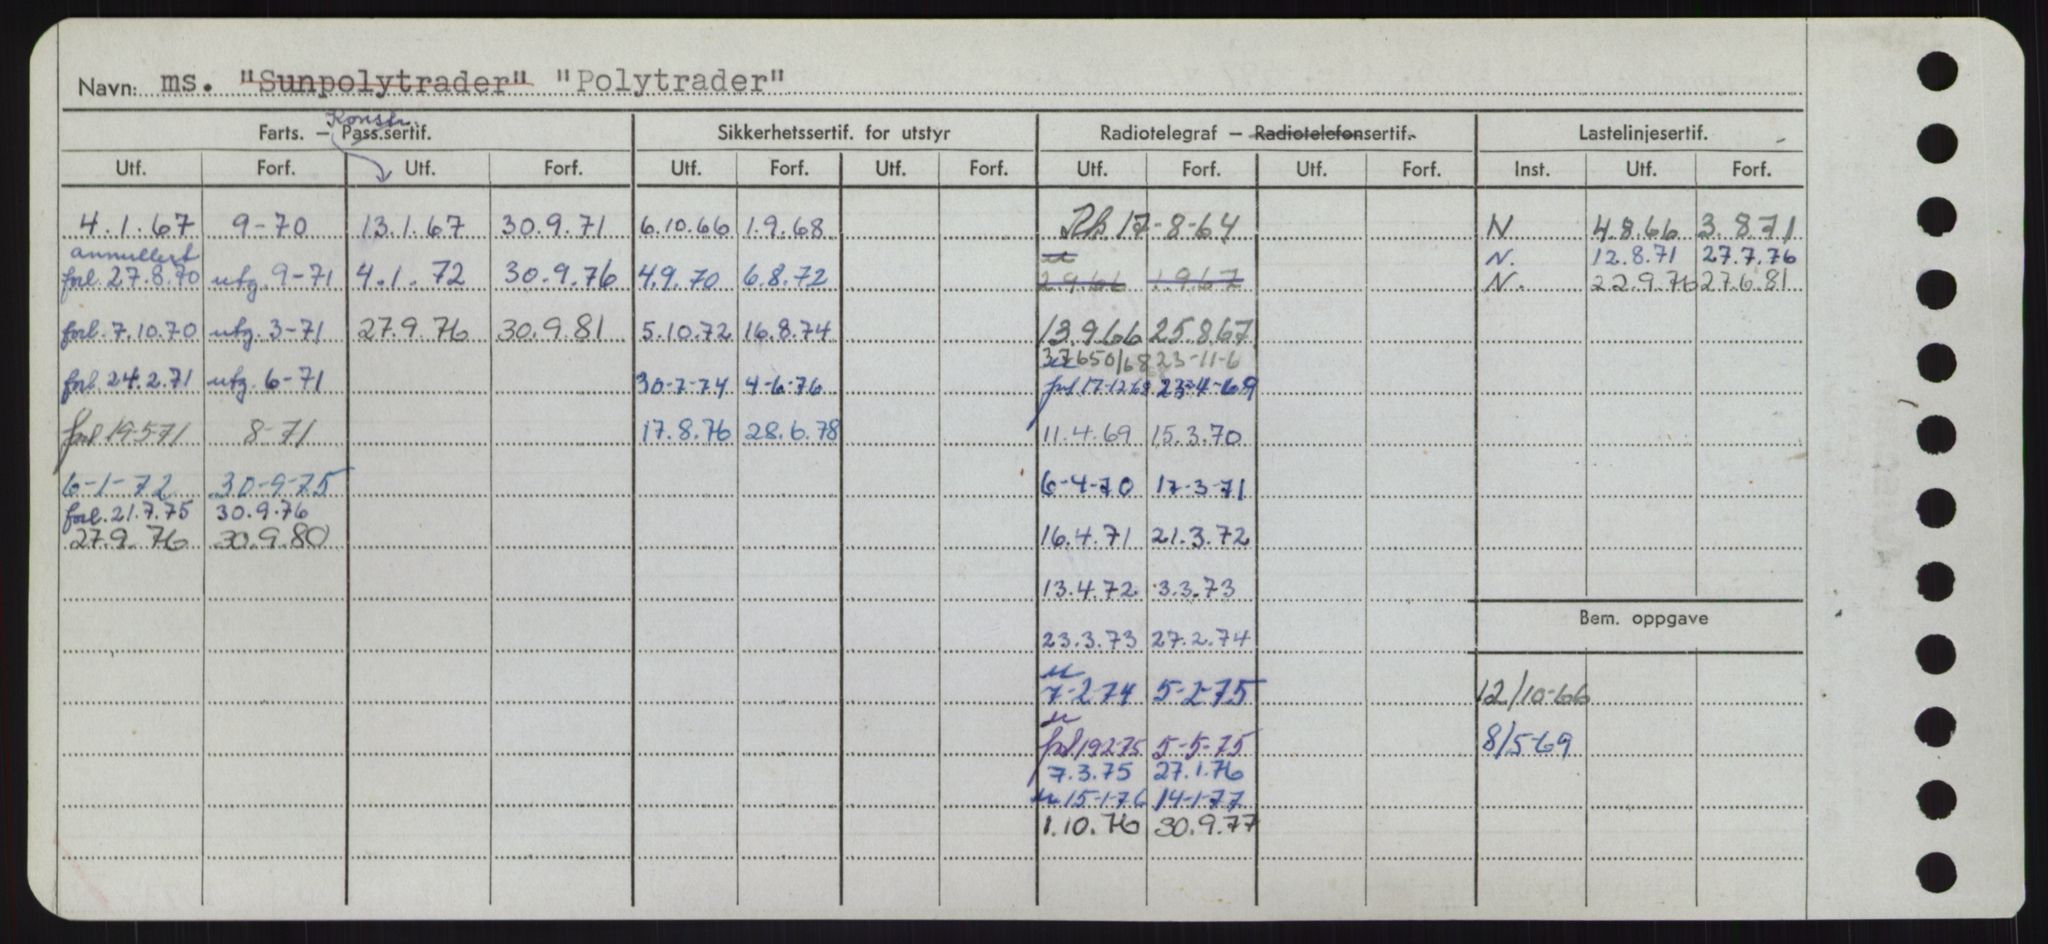 Navn: ms. "Sunpolytrader" "Polytrader"
Konstr.
Farts. – Pass.sertif. Sikkerhetssertif. for utstyr Radiotelegraf – Radiotelefonsertif. Lastelinjesertif.
Utf. Forf. Utf. Forf. Utf. Forf. Utf. Forf. Utf. Forf. Utf. Forf. Inst. Utf. Forf.
4.1.67 9-70 13.1.67 30.9.71 6.10.66 1.9.68 17-8-64 N 4.8.66 3.8.71
annullert N. 12.8.71 27.7.76
forl. 27.8.70 utg. 9-71 4.1.72 30.9.76 4.9.70 6.8.72 2.9.66 1.9.67 N. 22.9.76 27.6.81
forl. 7.10.70 utg. 3-71 27.9.76 30.9.81 5.10.72 16.8.74 13.9.66 25.8.67
37650/68 23-11-6
forl. 24.2.71 utg. 6-71 30-7-74 4-6-76 forl 17-12-68 23-4-69
forl 19-5-71 8-71 17.8.76 28.6.78 11.4.69 15.3.70
6-1-72 30-9-75 6-4-70 17-3-71
forl. 21.7.75 30.9.76
27.9.76 30.9.80 16.4.71 21.3.72
13.4.72 3.3.73
Bem. oppgave
23.3.73 27.2.74
7-2-74 5-2-75 12/10-66
forl 19275 5-5-75 8/5-69
7.3.75 27.1.76
15-1-76 14-1-77
1.10.76 30.9.77